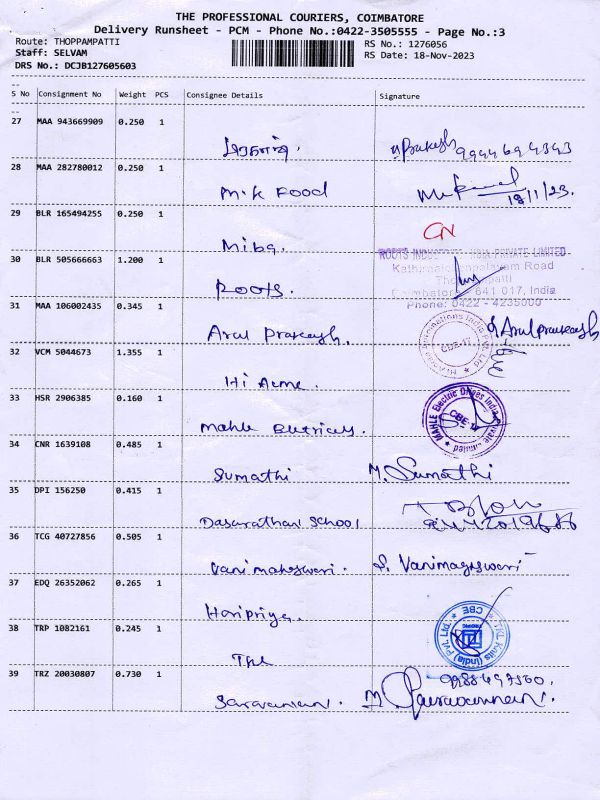 THE PROFESSIONAL COURIERS, COIMBATORE
Delivery Runsheet - PCM - Phone No.:0422-3505555 - Page No.:3
Route: THOPPAMPATTI
RS No.: 1276056
Staff: SELVAM
RS Date: 18-Nov-2023
DRS No.: DCJB127605603
S No Consignment No Weight PCS Consignee Details Signature
27 MAA 943669909 0.250 1
28 MAA 282780012 0.250 1
M.K Food 18/11/23.
29 BLR 165494255 0.250 1
CN
Miba.
30 BLR 505666663 1.200 1
ROOTS INDUSTRIES INDIA PRIVATE LIMITED
Road
Roots.
Coimbatore - 641 017, India
Phone: 0422 - 4235000
31 MAA 106002435 0.345 1
Arul Prakash. Arul prakash
CBE-17
32 VCM 5044673 1.355 1
Hi Acme.
33 HSR 2906385 0.160 1
MAHLE Electric Drives India Private Limited
CBE-17
Mahle Eletrices.
34 CNR 1639108 0.485 1
Sumathi M. Sumathi
35 DPI 156250 0.415 1
Dasarathan School
36 TCG 40727856 0.505 1
Vanimaheswari. S. Vanimageswari
37 EDQ 26352062 0.265 1
Haripriya.
38 TRP 1082161 0.245 1
Knits (India) Pvt. Ltd. CBE
39 TRZ 20030807 0.730 1
Saravanan.